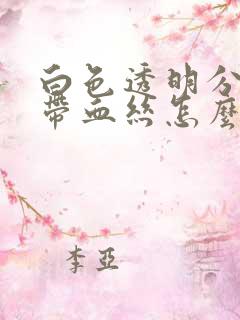 白色透明分
帶血絲怎麼
李亞